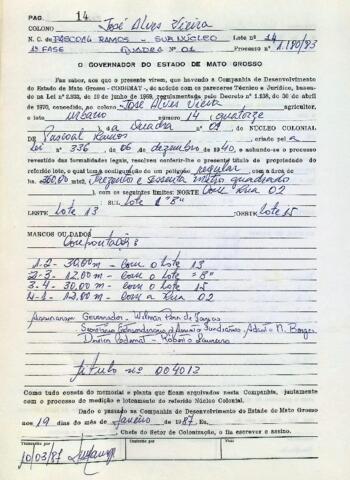 PAG. 14
COLONO José Alves Vieira
N. C. de PASCOAL RAMOS - SUB NÚCLEO Lote nº 14
1ª FASE QUADRA Nº 01 Processo nº 1.180/83
O GOVERNADOR DO ESTADO DE MATO GROSSO
Faz saber, aos que a presente virem, que havendo a Companhia de Desenvolvimento
do Estado de Mato Grosso - CODEMAT -, de acôrdo com os pareceres Técnico e Jurídico, basea-
do na Lei nº 2.923, de 10 de junho de 1969, regulamentada pelo Decreto nº 1.138, de 30 de abril
de 1970, concedido, ao colono José Alves Vieira agricultor,
o lote urbano número 14 quatorze
), da Quadra nº 01 do NÚCLEO COLONIAL
de Pascoal Ramos criado pela
Lei nº 336, de 06 de dezembro de 1940, e achando-se o processo
revestido das formalidades legais, resolveu conferir-lhe o presente título de propriedade do
referido lote, o qual tem a configuração de um polígono regular com a área de
ha. 360,00 mts2 Trezentos e sessenta metros quadrados
), com os seguintes limites: NORTE Com Rua 02
; SUL lote "B"
LESTE lote 13 ; OESTE lote 15
MARCOS OU DADOS
Confrontações
1-2- 30,00m - Com o lote 13
2-3- 12,00m - Com o lote "B"
3-4- 30,00m - Com o lote 15
4-1- 12,00m - Com a Rua 02
Assinaram Governador, Wilmar Peres de Farias
Secretário Extraordinário de Assuntos Fundiários, N. Borges
Diretor Codemat - Roberto Loureiro
Título nº 004013
Como tudo consta do memorial e planta que ficam arquivados nesta Companhia, juntamente
com o processo de medição e loteamento do referido Núcleo Colonial.
Dado e passado na Companhia de Desenvolvimento do Estado de Mato Grosso
aos 19 dias do mês de Janeiro de 1987 Eu,
Chefe do Setor de Colonização, o fiz escrever e assino.
Transcrito por
10/03/87